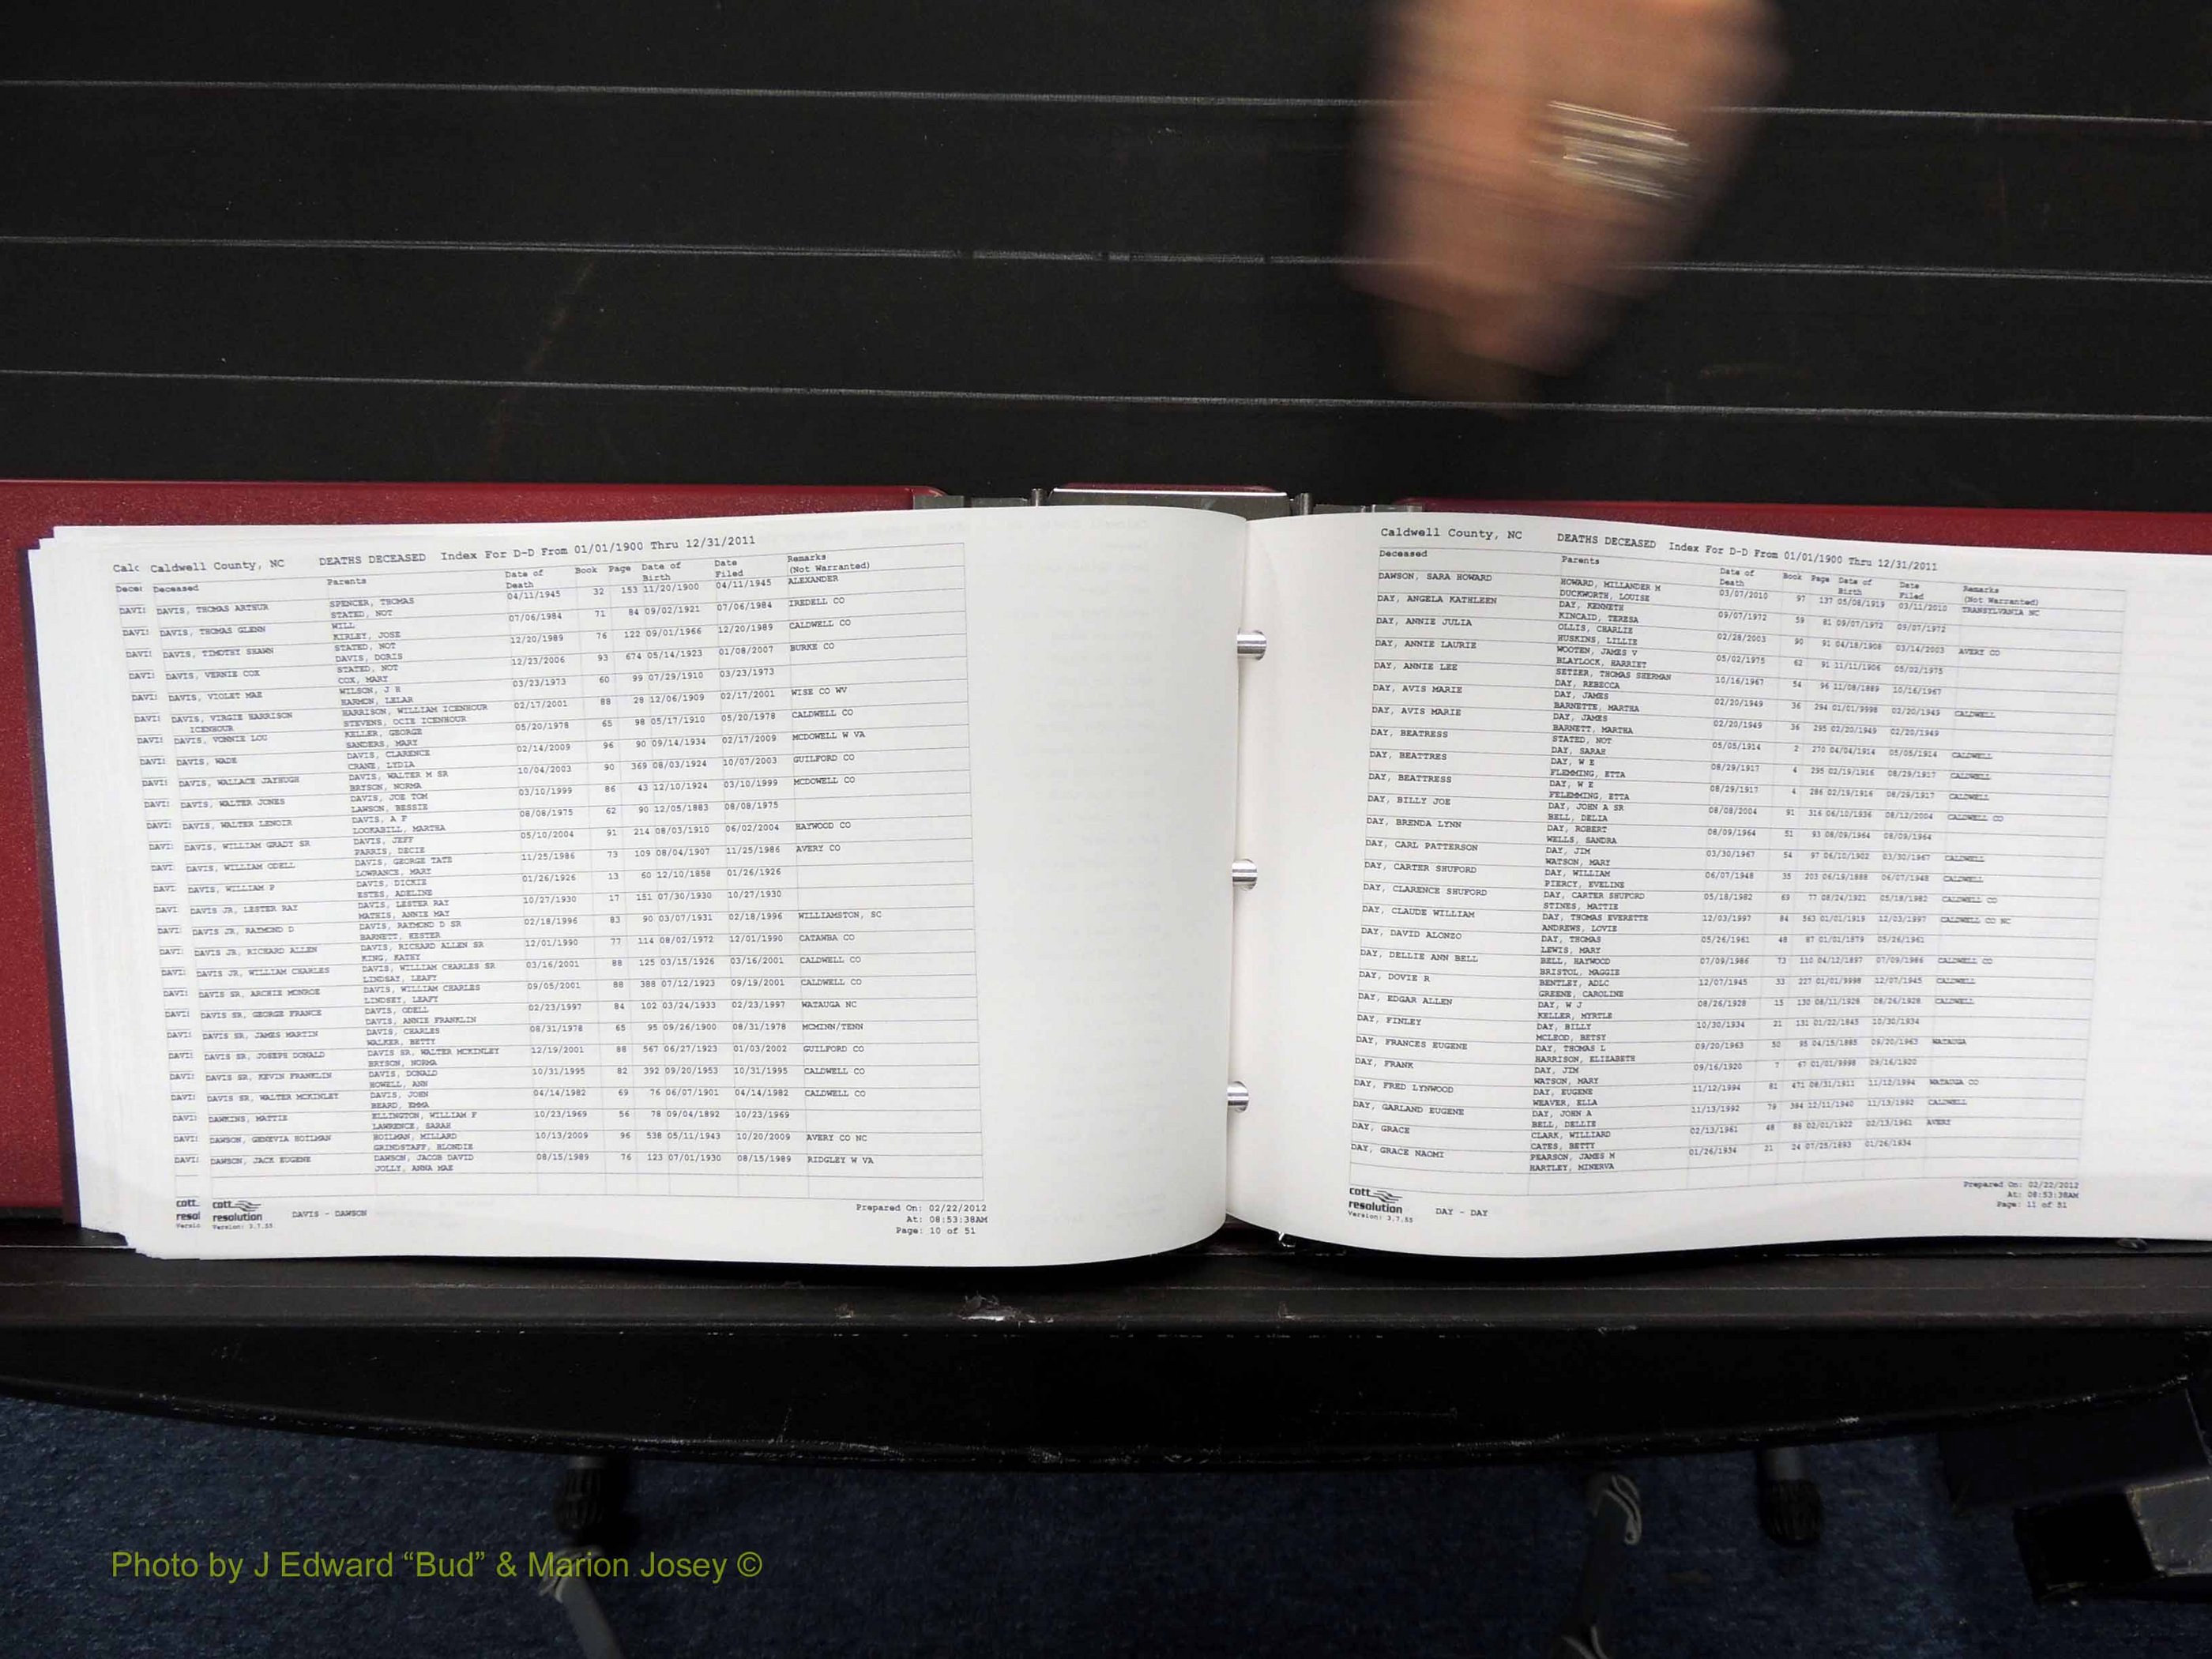 Calc Caldwell County, NC DEATHS DECEASED Index For D-D From 01/01/1900 Thru 12/31/2011
Decea Deceased Parents Date of Death Book Page Date of Birth Date Filed Remarks (Not Warranted)
DAVI: DAVIS, THOMAS ARTHUR SPENCER, THOMAS 04/11/1945 32 153 11/20/1900 04/11/1945 ALEXANDER
STATED, NOT
DAVI: DAVIS, THOMAS GLENN WILL 07/06/1984 71 84 09/02/1921 07/06/1984 IREDELL CO
KIRLEY, JOSE
DAVI: DAVIS, TIMOTHY SHAWN STATED, NOT 12/20/1989 76 122 09/01/1966 12/20/1989 CALDWELL CO
DAVIS, DORIS
DAVI: DAVIS, VERNIE COX STATED, NOT 12/23/2006 93 674 05/14/1923 01/08/2007 BURKE CO
COX, MARY
DAVI: DAVIS, VIOLET MAE WILSON, J H 03/23/1973 60 99 07/29/1910 03/23/1973
HARMON, LELAR
DAVI: DAVIS, VIRGIE HARRISON HARRISON, WILLIAM ICENHOUR 02/17/2001 88 28 12/06/1909 02/17/2001 WISE CO WV
ICENHOUR STEVENS, OCIE ICENHOUR
DAVI: DAVIS, VONNIE LOU KELLER, GEORGE 05/20/1978 65 98 05/17/1910 05/20/1978 CALDWELL CO
SANDERS, MARY
DAVI: DAVIS, WADE DAVIS, CLARENCE 02/14/2009 96 90 09/14/1934 02/17/2009 MCDOWELL W VA
CRANE, LYDIA
DAVI: DAVIS, WALLACE JAYHUGH DAVIS, WALTER M SR 10/04/2003 90 369 08/03/1924 10/07/2003 GUILFORD CO
BRYSON, NORMA
DAVI: DAVIS, WALTER JONES DAVIS, JOE TOM 03/10/1999 86 43 12/10/1924 03/10/1999 MCDOWELL CO
LAWSON, BESSIE
DAVI: DAVIS, WALTER LENOIR DAVIS, A F 08/08/1975 62 90 12/05/1883 08/08/1975
LOOKABILL, MARTHA
DAVI: DAVIS, WILLIAM GRADY SR DAVIS, JEFF 05/10/2004 91 214 08/03/1910 06/02/2004 HAYWOOD CO
PARRIS, DECIE
DAVI: DAVIS, WILLIAM ODELL DAVIS, GEORGE TATE 11/25/1986 73 109 08/04/1907 11/25/1986 AVERY CO
LOWRANCE, MARY
DAVI: DAVIS, WILLIAM P DAVIS, DICKIE 01/26/1926 13 60 12/10/1858 01/26/1926
ESTES, ADELINE
DAVI: DAVIS JR, LESTER RAY DAVIS, LESTER RAY 10/27/1930 17 151 07/30/1930 10/27/1930
MATHIS, ANNIE MAY
DAVI: DAVIS JR, RAYMOND D DAVIS, RAYMOND D SR 02/18/1996 83 90 03/07/1931 02/18/1996 WILLIAMSTON, SC
BARNETT, HESTER
DAVI: DAVIS JR, RICHARD ALLEN DAVIS, RICHARD ALLEN SR 12/01/1990 77 114 08/02/1972 12/01/1990 CATAWBA CO
KING, KATHY
DAVI: DAVIS JR, WILLIAM CHARLES DAVIS, WILLIAM CHARLES SR 03/16/2001 88 125 03/15/1926 03/16/2001 CALDWELL CO
LINDSAY, LEAFY
DAVI: DAVIS SR, ARCHIE MONROE DAVIS, WILLIAM CHARLES 09/05/2001 88 388 07/12/1923 09/19/2001 CALDWELL CO
LINDSEY, LEAFY
DAVI: DAVIS SR, GEORGE FRANCE DAVIS, ODELL 02/23/1997 84 102 03/24/1933 02/23/1997 WATAUGA NC
DAVIS, ANNIE FRANKLIN
DAVI: DAVIS SR, JAMES MARTIN DAVIS, CHARLES 08/31/1978 65 95 09/26/1900 08/31/1978 MCMINN/TENN
WALKER, BETTY
DAVI: DAVIS SR, JOSEPH DONALD DAVIS SR, WALTER MCKINLEY 12/19/2001 88 567 06/27/1923 01/03/2002 GUILFORD CO
BRYSON, NORMA
DAVI: DAVIS SR, KEVIN FRANKLIN DAVIS, DONALD 10/31/1995 82 392 09/20/1953 10/31/1995 CALDWELL CO
HOWELL, ANN
DAVI: DAVIS SR, WALTER MCKINLEY DAVIS, JOHN 04/14/1982 69 76 06/07/1901 04/14/1982 CALDWELL CO
BEARD, EMMA
DAVI: DAWKINS, MATTIE ELLINGTON, WILLIAM F 10/23/1969 56 78 09/04/1892 10/23/1969
LAWRENCE, SARAH
DAVI: DAWSON, GENEVIA HOILMAN HOILMAN, MILLARD 10/13/2009 96 538 05/11/1943 10/20/2009 AVERY CO NC
GRINDSTAFF, BLONDIE
DAVI: DAWSON, JACK EUGENE DAWSON, JACOB DAVID 08/15/1989 76 123 07/01/1930 08/15/1989 RIDGLEY W VA
JOLLY, ANNA MAE
cott cott
resol resolution DAVIS - DAWSON
Versio Version: 3.7.55
Prepared On: 02/22/2012
At: 08:53:38AM
Page: 10 of 51
Caldwell County, NC DEATHS DECEASED Index For D-D From 01/01/1900 Thru 12/31/2011
Deceased Parents Date of Death Book Page Date of Birth Date Filed Remarks (Not Warranted)
DAWSON, SARA HOWARD HOWARD, MILLANDER M 03/07/2010 97 137 05/08/1919 03/11/2010 TRANSYLVANIA NC
DUCKWORTH, LOUISE
DAY, ANGELA KATHLEEN DAY, KENNETH 09/07/1972 59 81 09/07/1972 09/07/1972
KINCAID, TERESA
DAY, ANNIE JULIA OLLIS, CHARLIE 02/28/2003 90 91 04/18/1908 03/14/2003 AVERY CO
HUSKINS, LILLIE
DAY, ANNIE LAURIE WOOTEN, JAMES V 05/02/1975 62 91 11/11/1906 05/02/1975
BLAYLOCK, HARRIET
DAY, ANNIE LEE SETZER, THOMAS SHERMAN 10/16/1967 54 96 11/08/1889 10/16/1967
DAY, REBECCA
DAY, AVIS MARIE DAY, JAMES 02/20/1949 36 294 01/01/9998 02/20/1949 CALDWELL
BARNETTE, MARTHA
DAY, AVIS MARIE DAY, JAMES 02/20/1949 36 295 02/20/1949 02/20/1949
BARNETT, MARTHA
DAY, BEATRESS STATED, NOT 05/05/1914 2 270 04/04/1914 05/05/1914 CALDWELL
DAY, SARAH
DAY, BEATTRES DAY, W E 08/29/1917 4 295 02/19/1916 08/29/1917 CALDWELL
FLEMMING, ETTA
DAY, BEATTRESS DAY, W E 08/29/1917 4 286 02/19/1916 08/29/1917 CALDWELL
FELEMMING, ETTA
DAY, BILLY JOE DAY, JOHN A SR 08/08/2004 91 316 06/10/1936 08/12/2004 CALDWELL CO
BELL, DELIA
DAY, BRENDA LYNN DAY, ROBERT 08/09/1964 51 93 08/09/1964 08/09/1964
WELLS, SANDRA
DAY, CARL PATTERSON DAY, JIM 03/30/1967 54 97 06/10/1902 03/30/1967 CALDWELL
WATSON, MARY
DAY, CARTER SHUFORD DAY, WILLIAM 06/07/1948 35 203 06/19/1888 06/07/1948 CALDWELL
PIERCY, EVELINE
DAY, CLARENCE SHUFORD DAY, CARTER SHUFORD 05/18/1982 69 77 08/24/1921 05/18/1982 CALDWELL CO
STINES, MATTIE
DAY, CLAUDE WILLIAM DAY, THOMAS EVERETTE 12/03/1997 84 563 01/01/1919 12/03/1997 CALDWELL CO NC
ANDREWS, LOVIE
DAY, DAVID ALONZO DAY, THOMAS 05/26/1961 48 87 01/01/1879 05/26/1961
LEWIS, MARY
DAY, DELLIE ANN BELL BELL, HAYWOOD 07/09/1986 73 110 04/12/1897 07/09/1986 CALDWELL CO
BRISTOL, MAGGIE
DAY, DOVIE R BENTLEY, ADLC 12/07/1945 33 227 01/01/9998 12/07/1945 CALDWELL
GREENE, CAROLINE
DAY, EDGAR ALLEN DAY, W J 08/26/1928 15 130 08/11/1928 08/26/1928 CALDWELL
KELLER, MYRTLE
DAY, FINLEY DAY, BILLY 10/30/1934 21 131 01/22/1845 10/30/1934
MCLEOD, BETSY
DAY, FRANCES EUGENE DAY, THOMAS L 09/20/1963 50 95 04/15/1885 09/20/1963 WATAUGA
HARRISON, ELIZABETH
DAY, FRANK DAY, JIM 09/16/1920 7 67 01/01/9998 09/16/1920
WATSON, MARY
DAY, FRED LYNWOOD DAY, EUGENE 11/12/1994 81 471 08/31/1911 11/12/1994 WATAUGA CO
WEAVER, ELLA
DAY, GARLAND EUGENE DAY, JOHN A 11/13/1992 79 384 12/11/1940 11/13/1992 CALDWELL
BELL, DELLIE
DAY, GRACE CLARK, WILLIARD 02/13/1961 48 88 02/01/1922 02/13/1961 AVERY
CATES, BETTY
DAY, GRACE NAOMI PEARSON, JAMES M 01/26/1934 21 24 07/25/1893 01/26/1934
HARTLEY, MINERVA
cott
resolution DAY - DAY
Version: 3.7.55
Prepared On: 02/22/2012
At: 08:53:38AM
Page: 11 of 51
Photo by J Edward “Bud” & Marion Josey ©